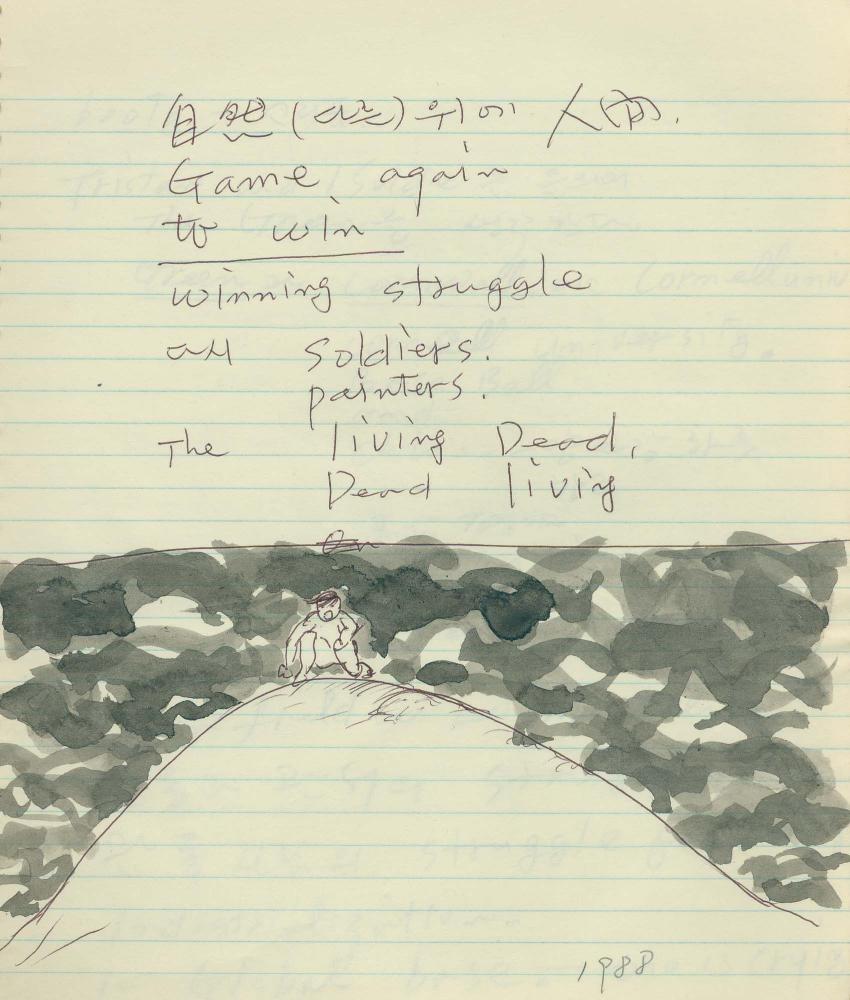 自然 위에 人間.
Game again
to win
winning struggle
soldiers.
painters.
The living Dead,
Dead living
1988